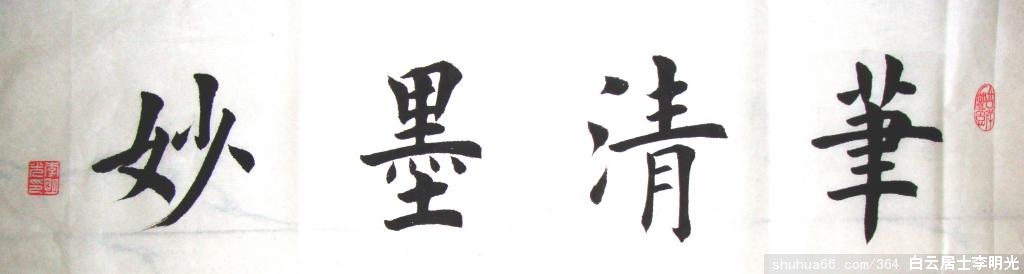 筆清墨妙
李明光印
shuhua66.com/364 白云居士李明光